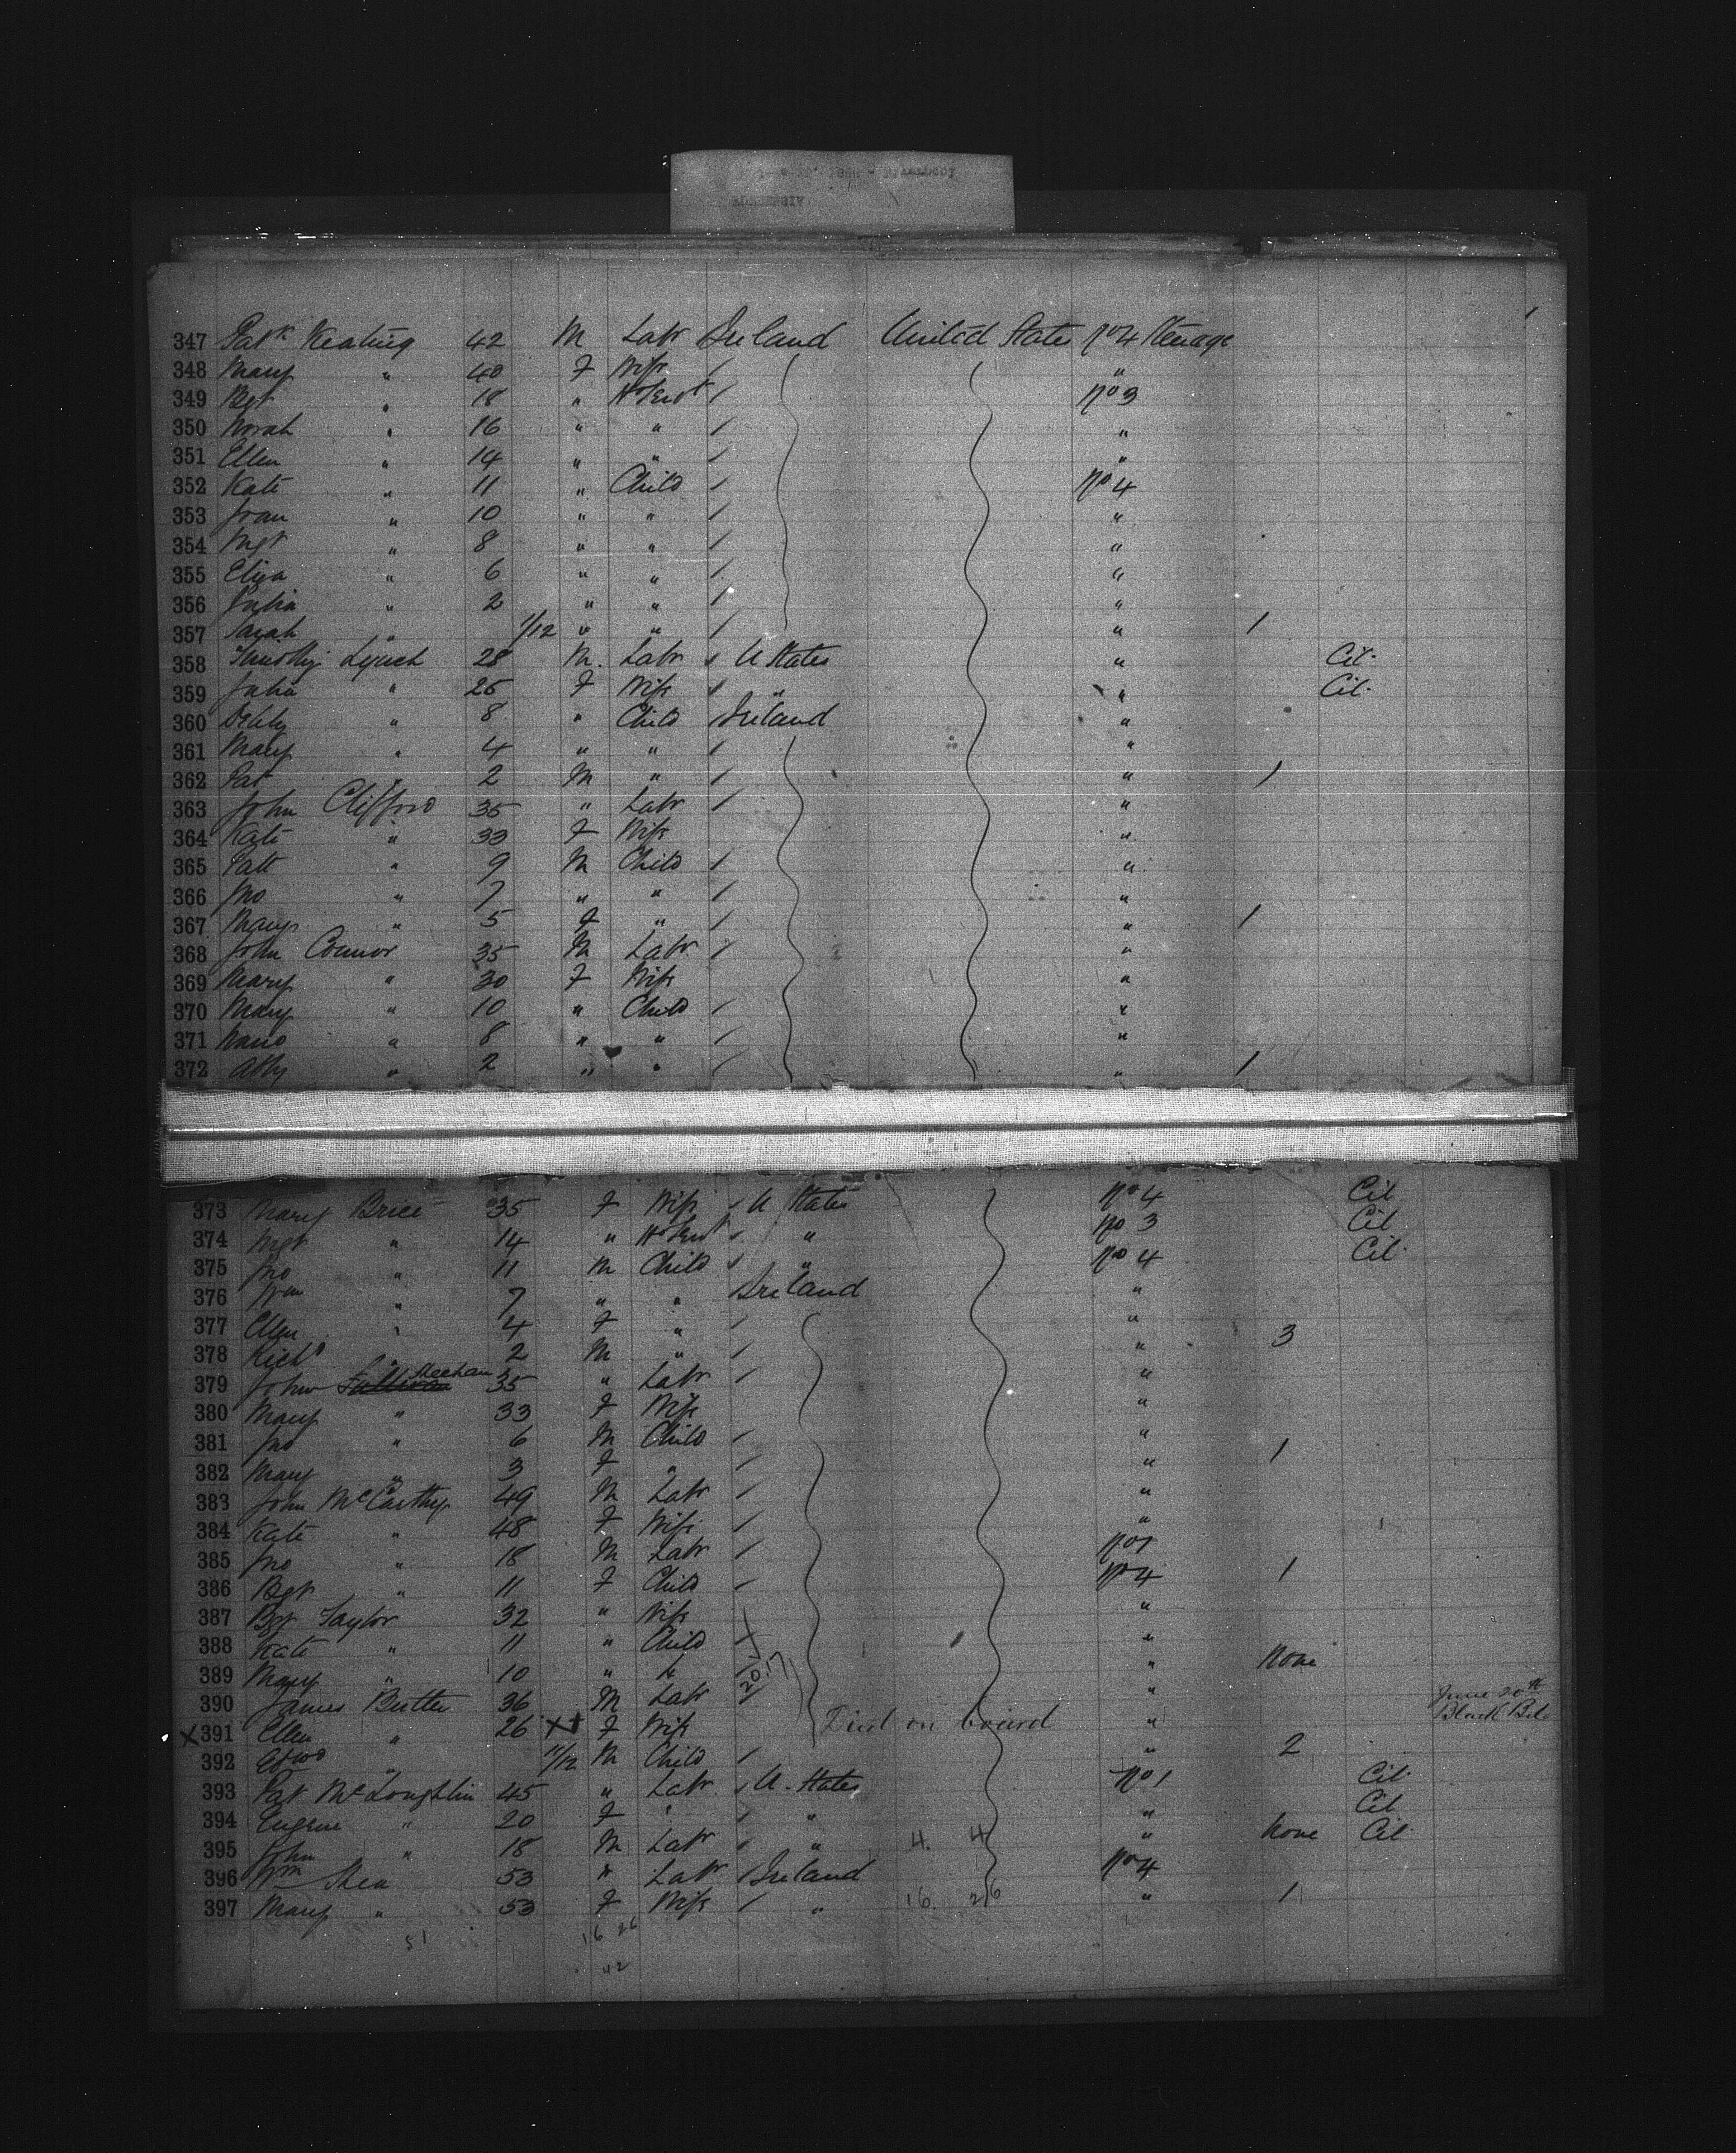 347 Patk Keating 42 M Labr Ireland United States No 4 Steerage
348 Mary " 40 F Wife / "
349 Bgt " 18 " H Servt / No 3
350 Norah " 16 " " / "
351 Ellen " 14 " " / "
352 Kate " 11 " Child / No 4
353 Joan " 10 " " / "
354 Mgt " 8 " " / "
355 Eliza " 6 " " / "
356 Julia " 2 " " / "
357 Sarah " 1/12 " " / " 1
358 Timothy Lynch 28 M. Labr / U States " Cit.
359 Julia " 25 F Wife / " " Cit.
360 Debby " 8 " Child Ireland "
361 Mary " 4 " " / "
362 Pat " 2 M " / " 1
363 John Clifford 35 " Labr / "
364 Kate " 33 F Wife "
365 Patt " 9 M Child / "
366 Jno " 7 " " / "
367 Mary " 5 F " / " 1
368 John Connor 35 M Labr. / "
369 Mary " 30 F Wife "
370 Mary " 10 " Child / "
371 Nano " 8 " " / "
372 " 2 " " / " 1
373 Mary Brice 35 F Wife / U States No 4 Cit
374 Mgt " 14 " H Servt / " No 3 Cit
375 Jno " 11 M Child / " No 4 Cit.
376 Wm " 7 " " Ireland "
377 Ellen " 4 F " / "
378 Richd " 2 M " / " 3
379 John Sullivan Sheehan 35 " Labr / "
380 Mary " 33 F Wife "
381 Jno " 6 M Child / "
382 Mary " 3 F " / " 1
383 John McCarthy 49 M Labr / "
384 Kate " 48 F Wife / "
385 Jno " 18 M Labr / No 1
386 Bgt " 11 F Child / No 4 1
387 Bgt Taylor 32 " Wife "
388 Kate " 11 " Child / "
389 Mary " 10 " " 20.17 " None
390 James Butler 36 M Labr / " June 20th
X 391 Ellen " 26 X F Wife Died on board "
392 " 11/12 M Child / " 2
393 Pat McLoughlin 45 " Labr / U. States No 1 Cit.
394 Eugene " 20 F " / " " Cit
395 John " 18 M Labr / " 4. 4 " None Cit
396 Wm Shea 53 " Labr / Ireland No 4
397 Mary " 53 F Wife / " 16. 26 " 1
51 16 26
42